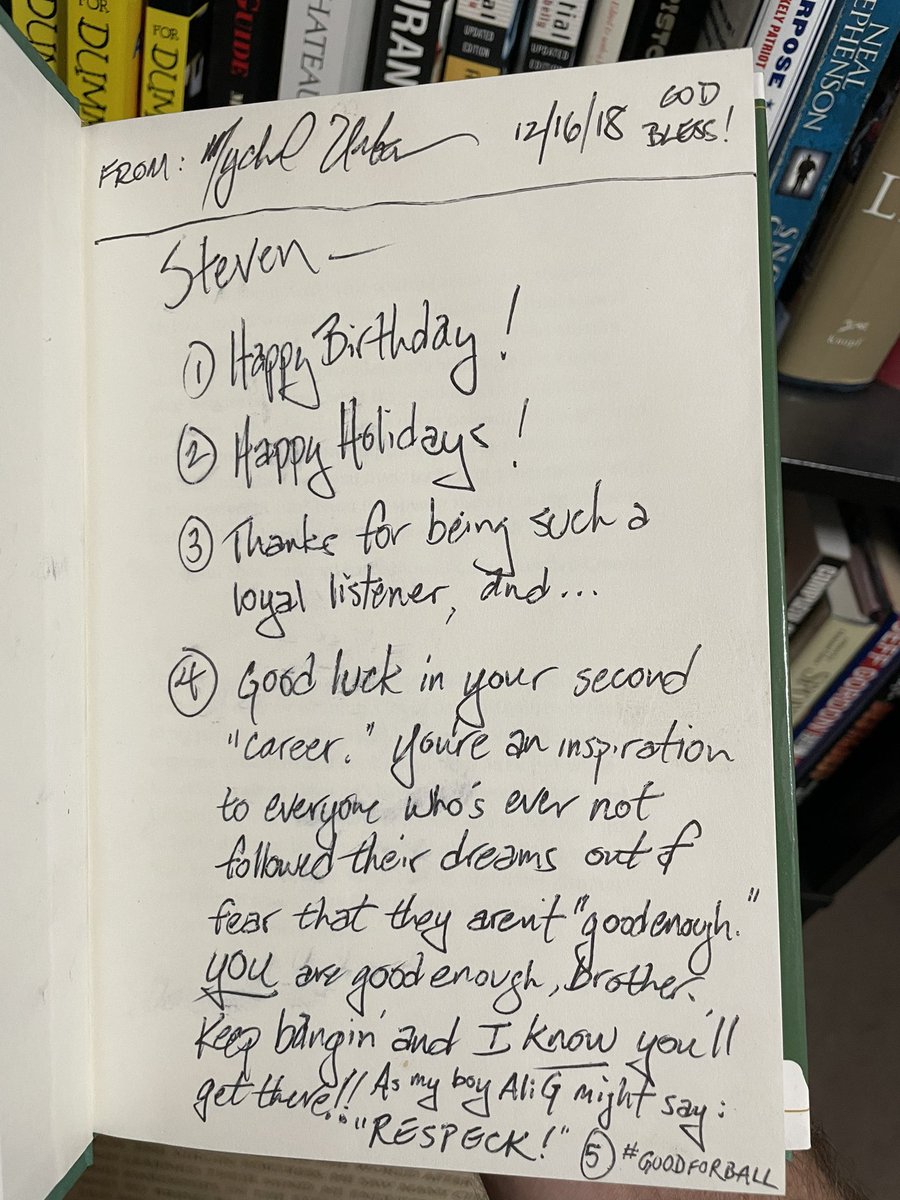 FOR
DUMM
FOR
DUM
GUIDE
CHATEAU
UPDATED
EDITION
UPDATED
EDITION
KELY PATRIOT
RPOSE
NEAL
EPHENSON
SNO
Knopf
JEFF GORDON
FROM: Mychael Urban 12/16/18 GOD
BLESS!
Steven —
① Happy Birthday!
② Happy Holidays!
③ Thanks for being such a
loyal listener, and...
④ Good luck in your second
"career." You're an inspiration
to everyone who's ever not
followed their dreams out of
fear that they aren't "good enough."
YOU are good enough, brother.
Keep bangin' and I know you'll
get there!! As my boy Ali G might say:
"RESPECK!" ⑤ #GOODFORBALL